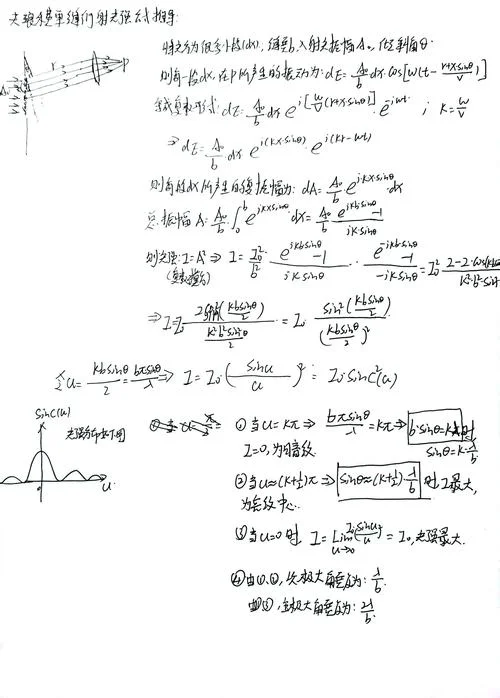 夫琅禾费单缝衍射光强公式推导:
将光分为很多小段(dx), 缝宽b, 入射光振幅A₀, 倾斜角θ.
则每一段dx, 在P所产生的振动为: dE = A₀/b dx cos[w(t - (r+x·sinθ)/V)]
dE = A₀/b dx e^{i[w/V (r+x·sinθ)]} · e^{-iwt} ; K = w/V
⇒ dE = A₀/b dx e^{i(kx·sinθ)} · e^{i(kr-wt)}
则每段dx所产生的复振幅为: dA = A₀/b · e^{ikx·sinθ} dx
总振幅 A = A₀/b · ∫₀^b e^{ikx sinθ} dx = A₀/b · (e^{ikb sinθ} - 1)/(ik·sinθ)
则光强: I = A² ⇒ I = I₀/b² · (e^{ikb sinθ} - 1)/(ik sinθ) · (e^{-ikb sinθ} - 1)/(-ik·sinθ) = I₀
⇒ I = I₀ = I₀ sin²(kb sinθ/2)/(kb sinθ/2)²
令u = kb sinθ/2 = bπ sinθ/λ ⇒ I = I₀ (sin u/u)² = I₀ sinc²(u)
sinc(u)
光强分布如下图
0
u
① 当u = kπ ⇒ bπ sinθ/λ = kπ ⇒ b·sinθ = kλ 时
sinθ = k·λ/b
I = 0, 为暗纹.
② 当u ≈ (k+½)π ⇒ sinθ ≈ (k+½)·λ/b 时, I最大,
为亮纹中心.
③ 当u = 0 时, I = Lim u→0 I₀(sin u/u)² = I₀, 光强最大.
④ 由①, ②, 次极大角宽度为: λ/b.
主极大角宽度为: 2λ/b.